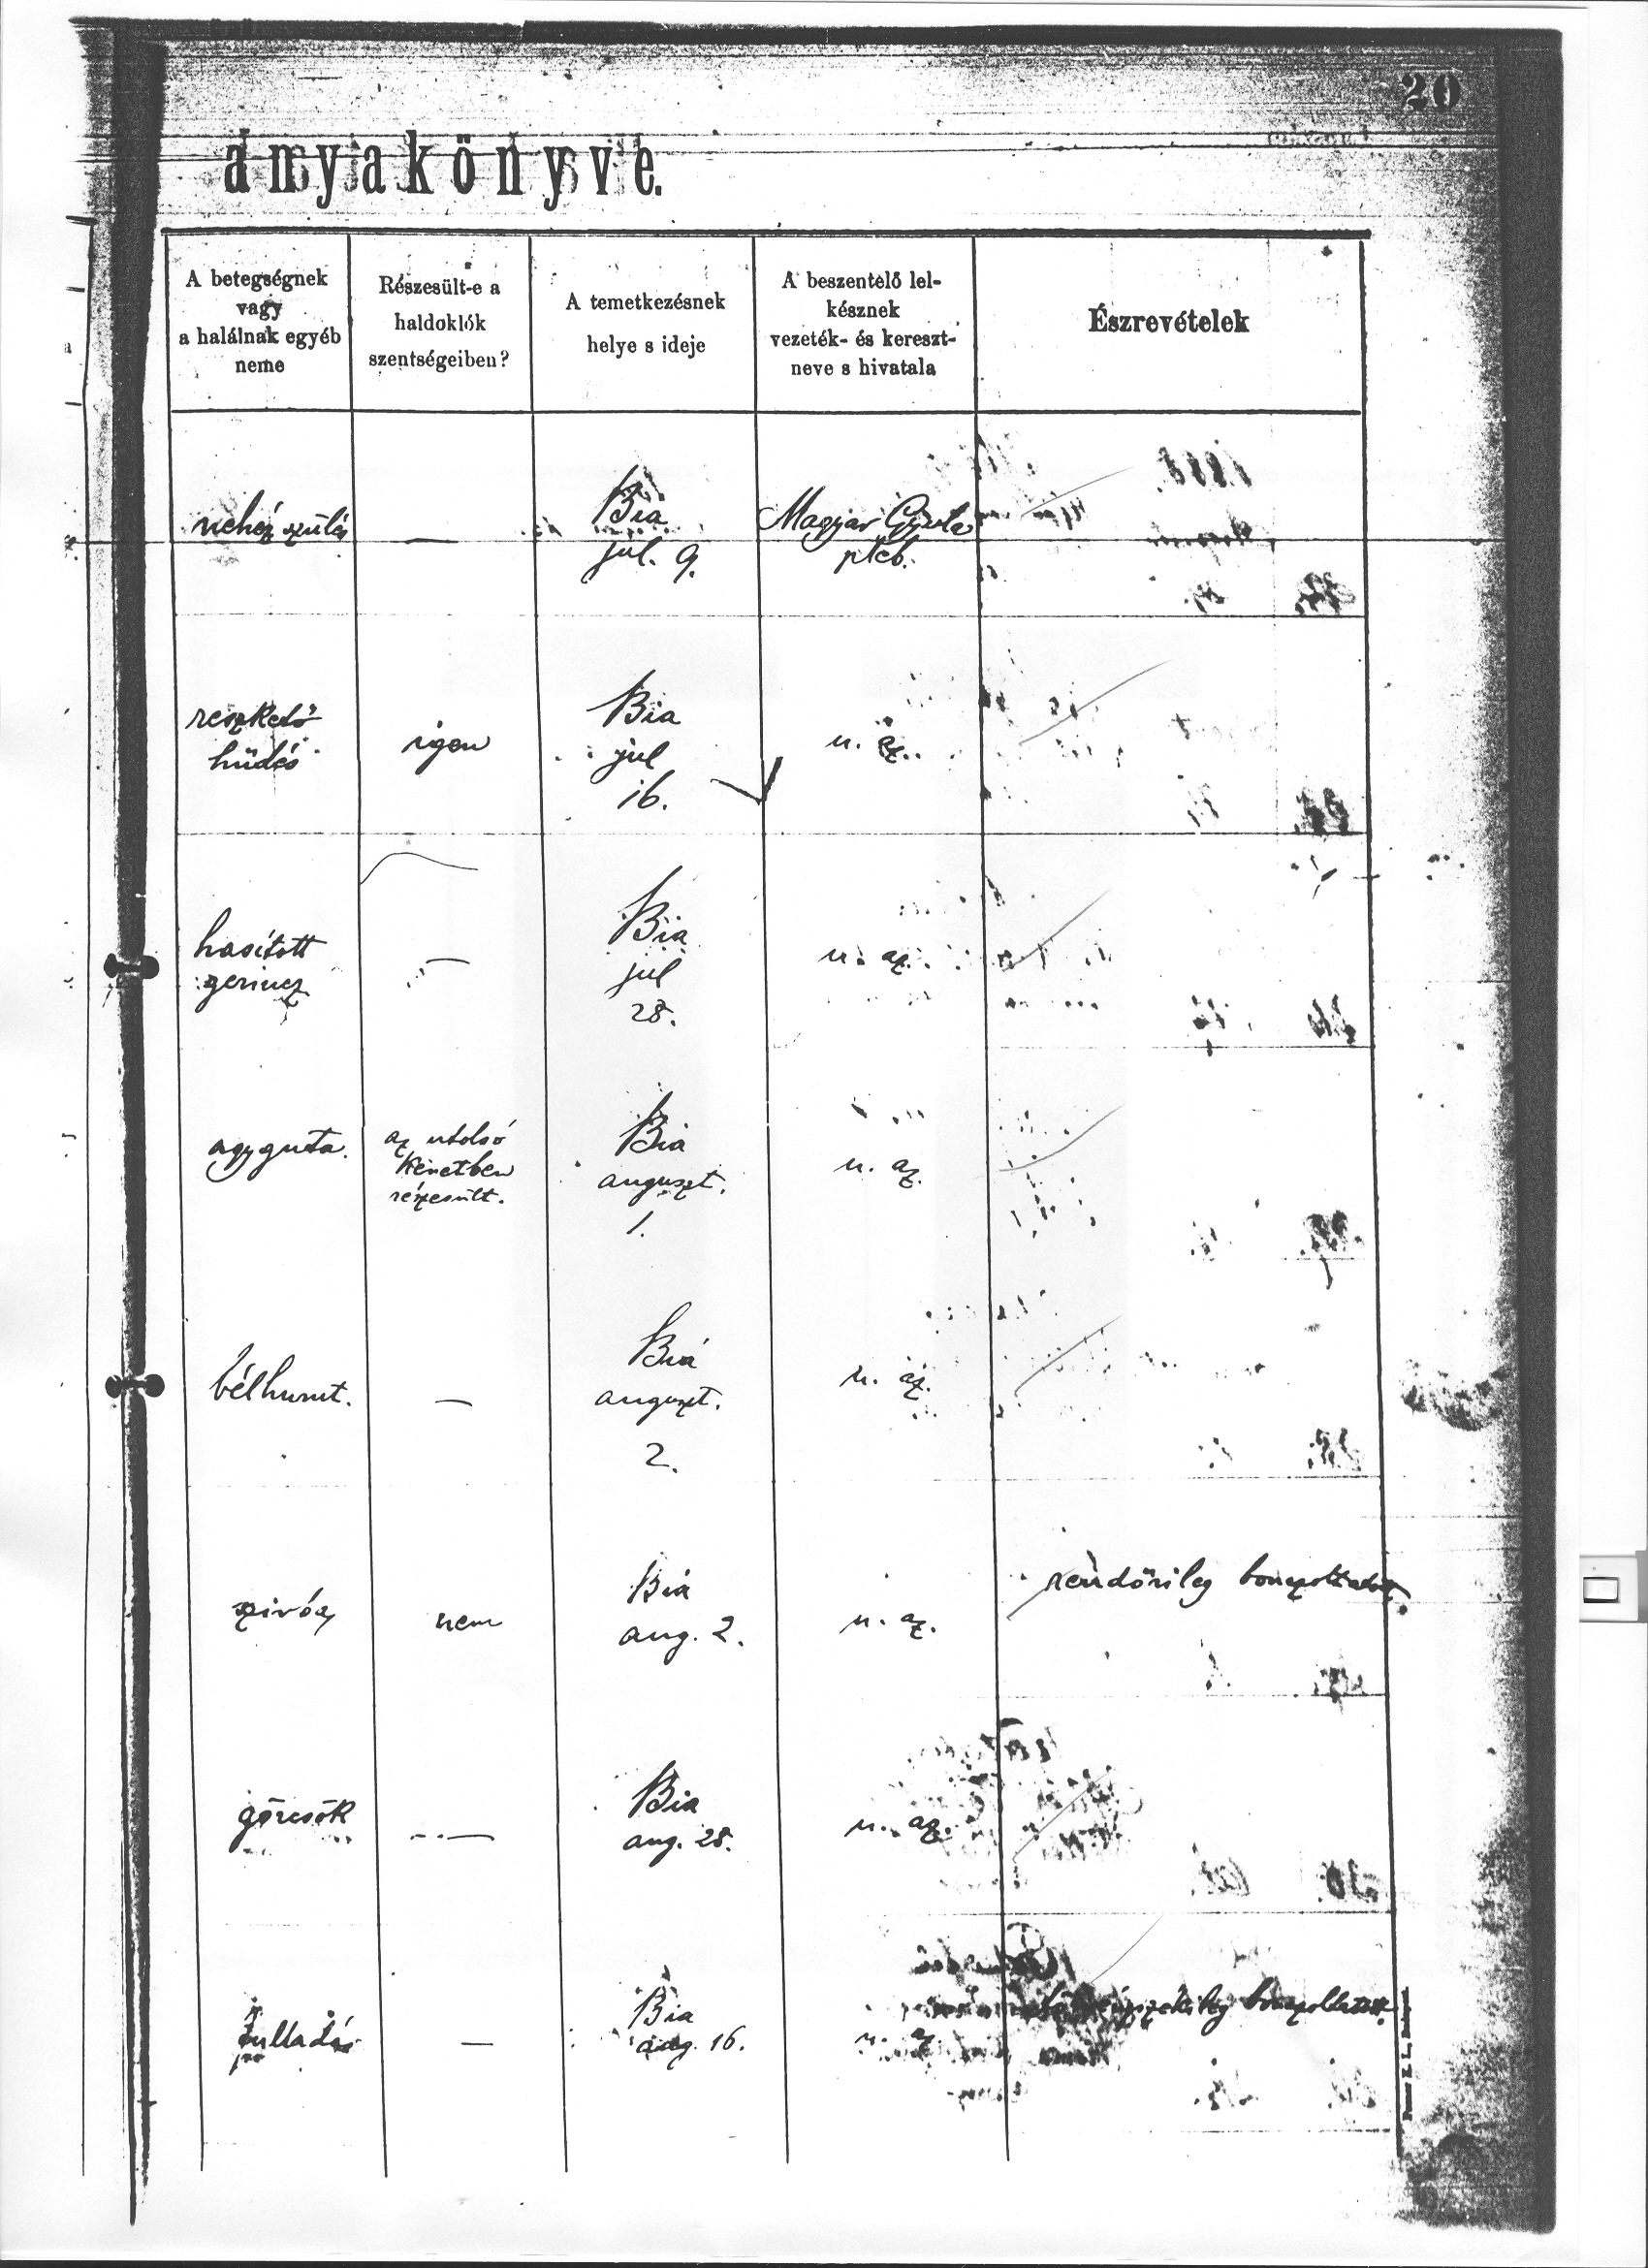 20
anyakönyve.
A betegségnek
vagy
a halálnak egyéb
neme
Részesült-e a
haldoklók
szentségeiben?
A temetkezésnek
helye s ideje
A beszentelő lel-
késznek
vezeték- és kereszt-
neve s hivatala
Észrevételek
nehéz szülés
—
Bia
jul. 9.
Magyar Gyula
pleb.
reszkető
hüdés
igen
Bia
jul
16.
u. az.
hasított
gerincz
—
Bia
jul
28.
u. az.
agyguta.
az utolsó
kenetben
részesült.
Bia
auguszt.
1.
u. az.
bélhurut.
—
Bia
auguszt.
2.
u. az.
szivóz
nem
Bia
aug. 2.
u. az.
rendőrileg bonczoltatott.
görcsök
—
Bia
aug. 28.
u. az.
fulladás
—
Bia
aug. 16.
u. az.
bonczoltatott.